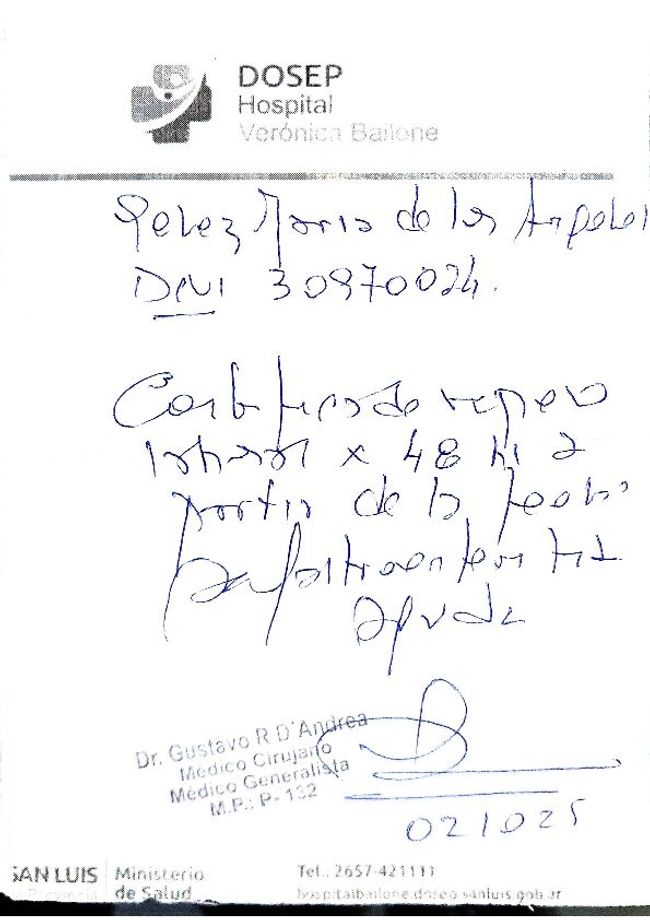 DOSEP
Hospital
Verónica Bailone
Perez Maria de los Angeles
DNI 30970024.
Certifico de reposo
laboral x 48 hs a
partir de la fecha
por gastroenteritis
aguda
Dr. Gustavo R D'Andrea
Médico Cirujano
Médico Generalista
M.P.: P- 132
021025
SAN LUIS
Ministerio
de Salud
Tel.: 2657-421111
hospitalbailone.dosep.sanluis.gob.ar